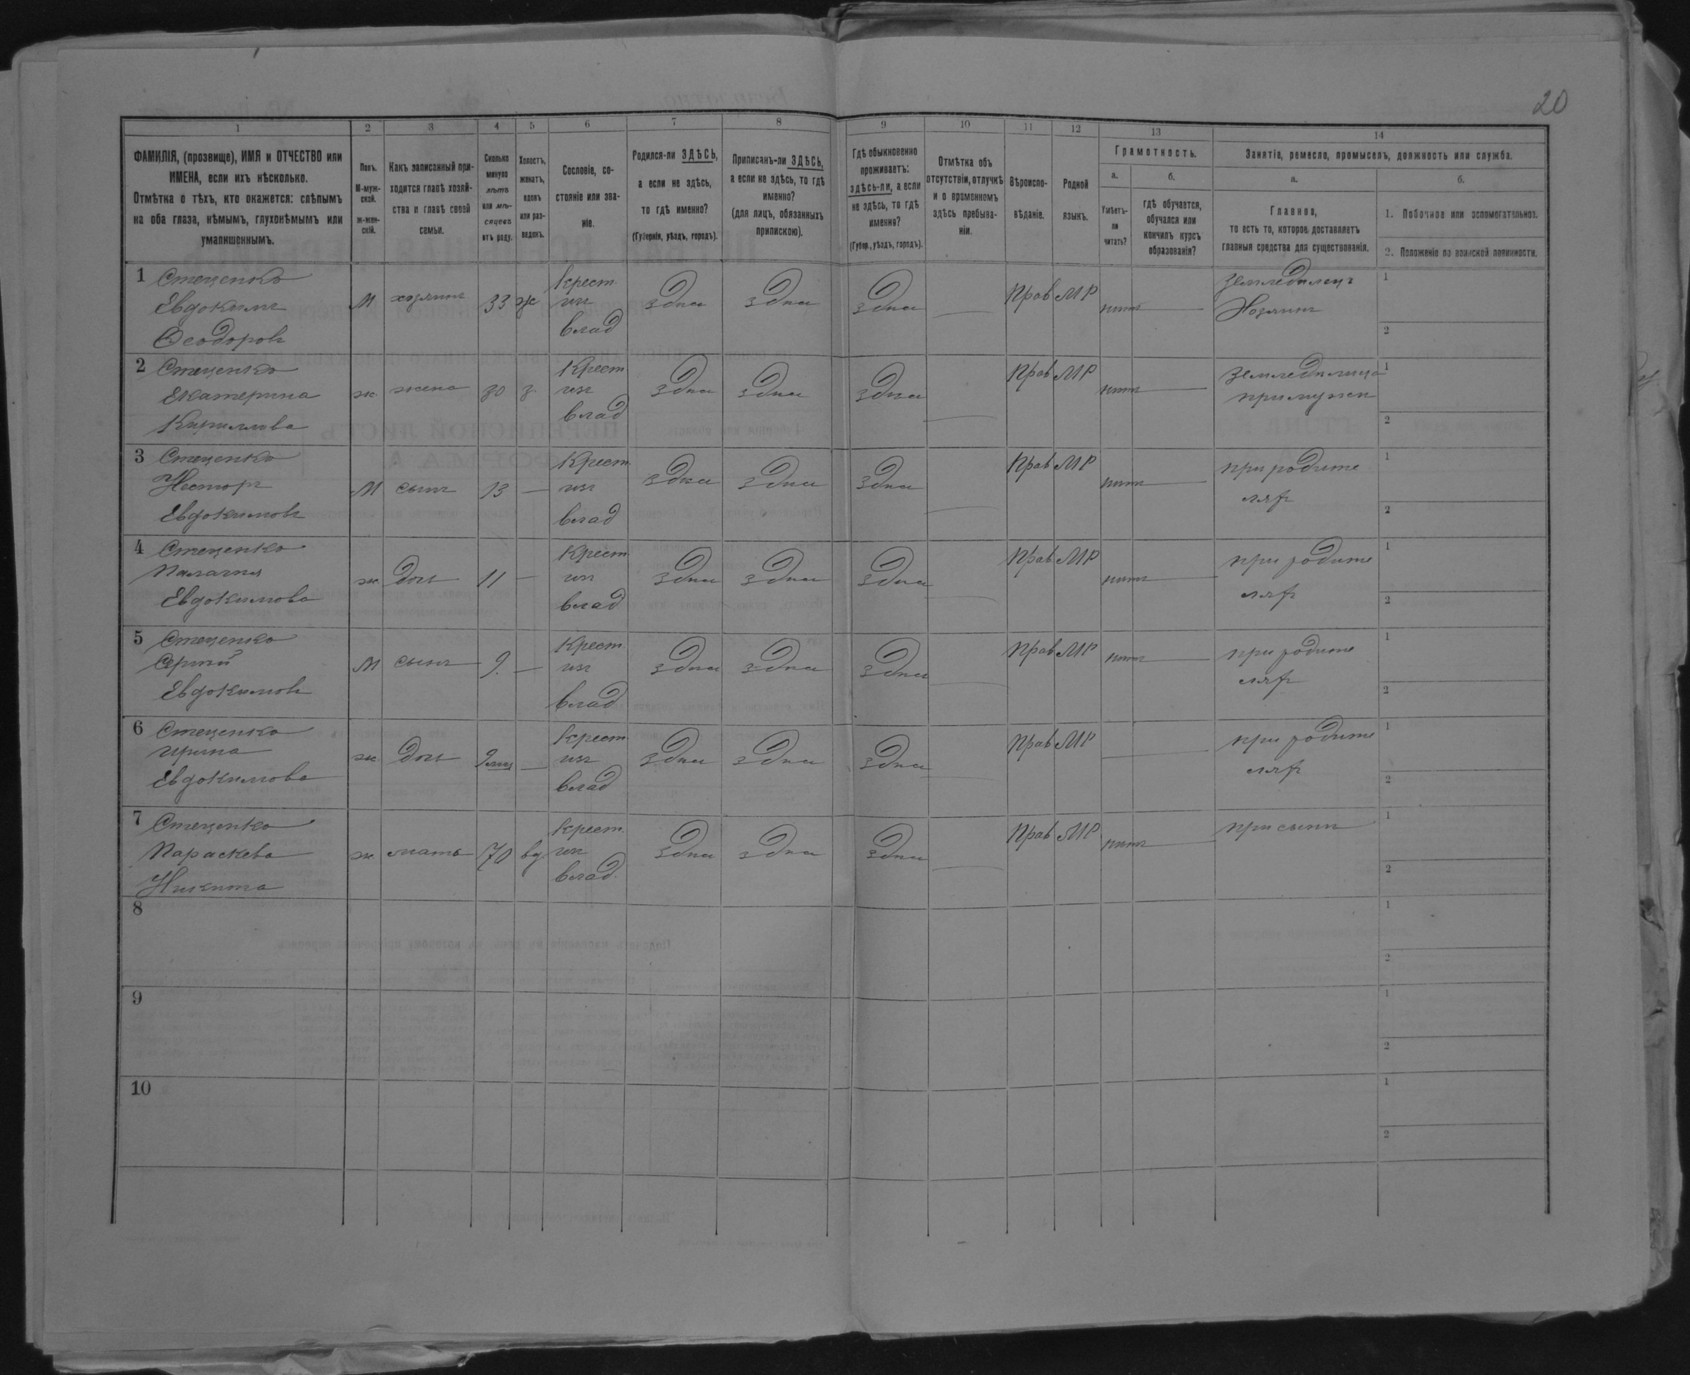 20
1 2 3 4 5 6 7 8 9 10 11 12 13 14
ФАМИЛІЯ, (прозвище), ИМЯ и ОТЧЕСТВО или
ИМЕНА, если ихъ нѣсколько.
Отмѣтка о тѣхъ, кто окажется: слѣпымъ
на оба глаза, нѣмымъ, глухонѣмымъ или
умалишеннымъ.
Полъ.
М-муж-
ской.
Ж-жен-
скій.
Какъ записанный при-
ходится главѣ хозяй-
ства и главѣ своей
семьи.
Сколько
минуло
лѣтъ
или мѣ-
сяцевъ
отъ роду.
Холостъ,
женатъ,
вдовъ
или раз-
веденъ.
Сословіе, со-
стояніе или зва-
ніе.
Родился-ли ЗДѢСЬ,
а если не здѣсь,
то гдѣ именно?
(Губернія, уѣздъ, городъ).
Приписанъ-ли ЗДѢСЬ,
а если не здѣсь, то гдѣ
именно?
(для лицъ, обязанныхъ
припискою).
Гдѣ обыкновенно
проживаетъ:
здѣсь-ли, а если
не здѣсь, то гдѣ
именно?
(Губер., уѣздъ, городъ).
Отмѣтка объ
отсутствіи, отлучкѣ
и о временномъ
здѣсь пребыва-
ніи.
Вѣроиспо-
вѣданіе.
Родной
языкъ.
Грамотность.
а.
Умѣетъ-
ли
читать?
б.
гдѣ обучается,
обучался или
кончилъ курсъ
образованія?
Занятіе, ремесло, промыселъ, должность или служба.
а.
Главное,
то есть то, которое доставляетъ
главныя средства для существованія.
б.
1. Побочное или вспомогательное.
2. Положеніе по воинской повинности.
1 Стеценко
Евдокимъ
Ѳеодоровъ
М хозяинъ 33 ж
Крест
изъ
влад
здѣсь здѣсь здѣсь Прав МР нѣтъ
Земледѣлецъ
Хозяинъ
1
2
2 Стеценко
Екатерина
Кириллова
ж жена 30 з
Крест
изъ
влад
здѣсь здѣсь здѣсь Прав МР нѣтъ
Земледѣлица
при мужѣ
1
2
3 Стеценко
Несторъ
Евдокимовъ
М сынъ 13 —
Крест
изъ
влад
здѣсь здѣсь здѣсь Прав МР нѣтъ
при родите
ляхъ
1
2
4 Стеценко
Палагия
Евдокимова
ж дочь 11 —
Крест
изъ
влад
здѣсь здѣсь здѣсь Прав МР нѣтъ
при родите
ляхъ
1
2
5 Стеценко
Сергій
Евдокимовъ
М сынъ 9. —
Крест
изъ
влад
здѣсь здѣсь здѣсь Прав МР нѣтъ
при родите
ляхъ
1
2
6 Стеценко
Ирина
Евдокимова
ж дочь —
Крест
изъ
влад
здѣсь здѣсь здѣсь Прав МР
при родите
ляхъ
1
2
7 Стеценко
Параскева
Никитина
ж мать 70 вд
Крест
изъ
влад.
здѣсь здѣсь здѣсь Прав МР нѣтъ
при сынѣ
1
2
8
1
2
9
1
2
10
1
2